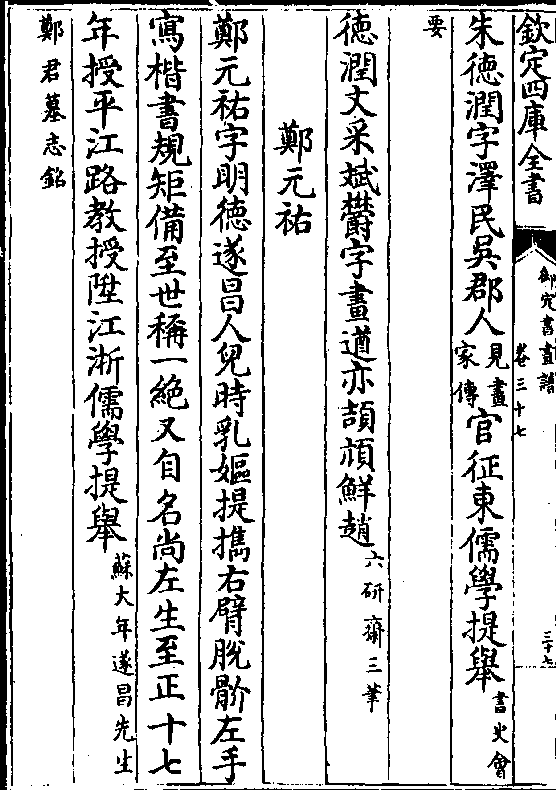 欽定四庫全書
御定書畫譜
卷三十七
三十七
朱徳潤字澤民吳郡人見畫家傳官征東儒學提舉書史會
要
徳潤文采斌欝字畫遒亦頡頏鮮趙六研齋三筆
鄭元祐
鄭元祐字明徳遂昌人兒時乳嫗提擕右臂脫骱左手
寫楷書規矩備至世稱一絶又自名尚左生至正十七
年授平江路教授陞江淅儒學提舉蘇大年遂昌先生
鄭君墓志銘